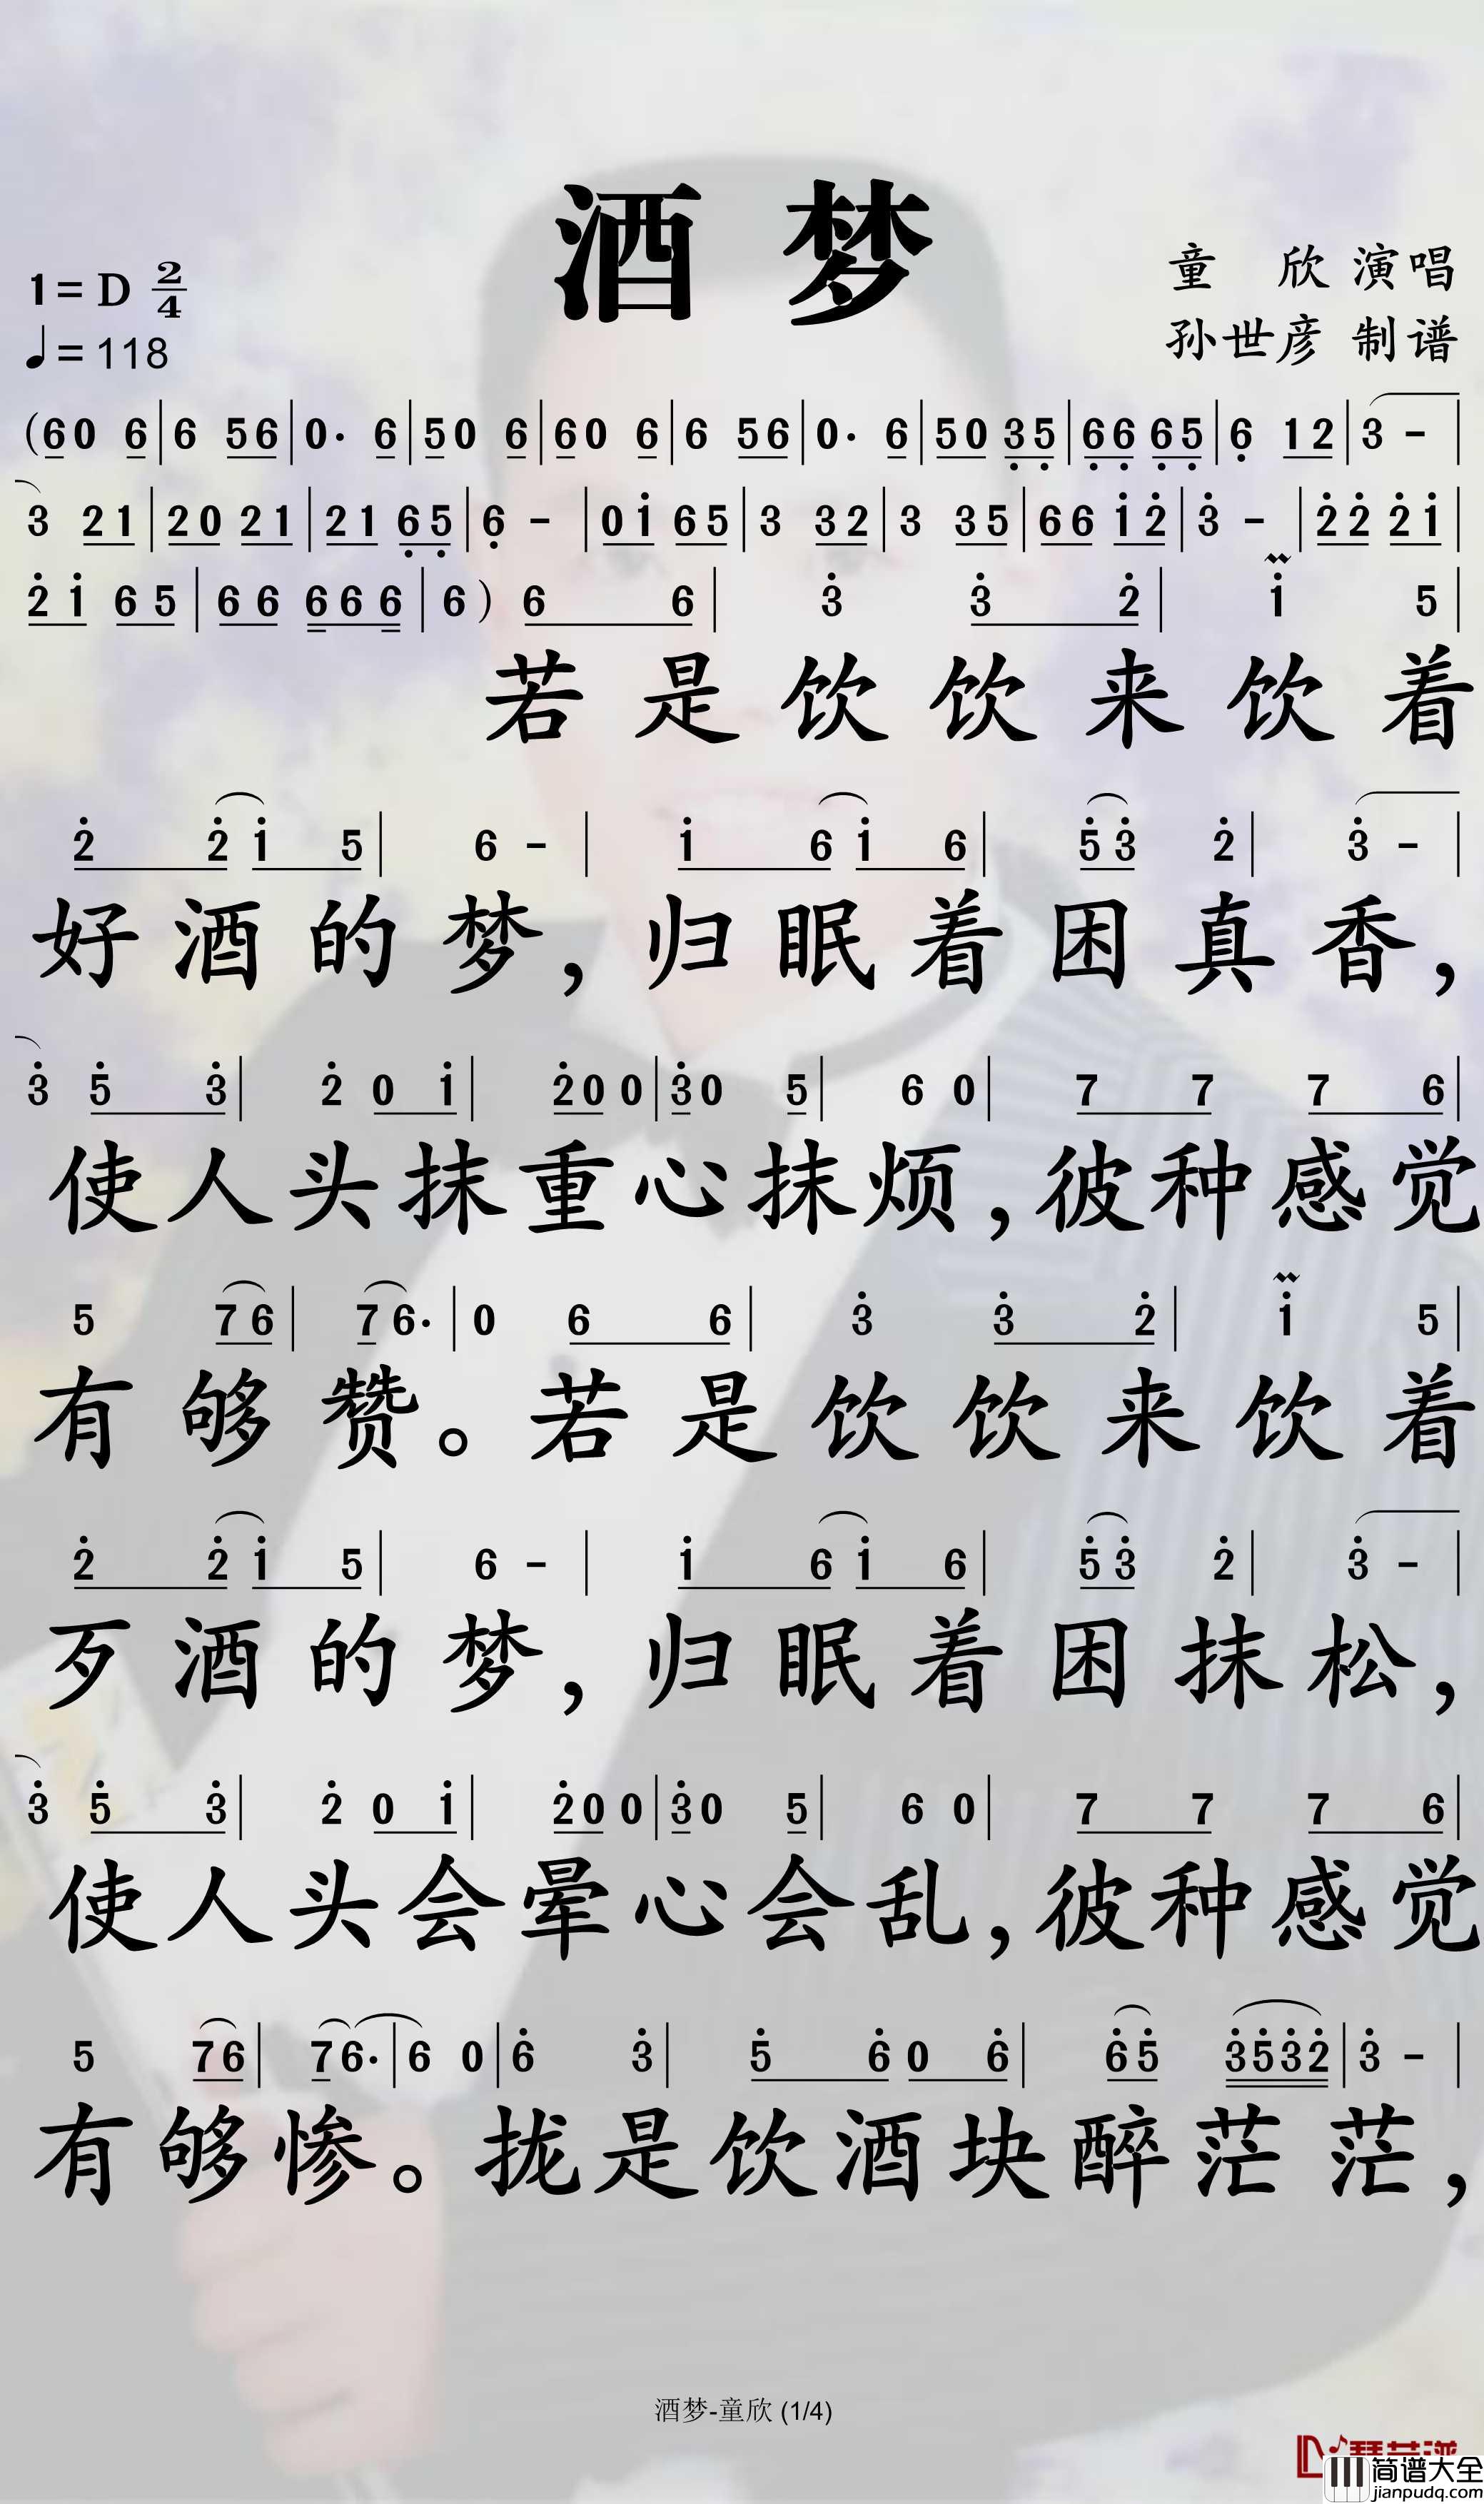 酒 梦
1=D 2/4
童 欣 演唱
♩=118
孙世彦 制谱
(60 6|6 56|0· 6|50 6|60 6|6 56|0· 6|50 3̣5̣|6̣6̣ 6̣5̣|6̣ 12|3 -|
3 21|20 21|21 6̣5̣|6̣ -|0i̇ 65|3 32|3 35|66 i̇2̇|3̇ -|2̇2̇ 2̇i̇|
2̇i̇ 65|66 666|6) 6 6|3̇ 3̇ 2̇|i̇ 5|
若是饮饮来饮着
2̇ 2̇i̇ 5|6 -|i̇ 6i̇ 6|5̇3̇ 2̇|3̇ -|
好酒的梦，归眠着困真香，
3̇ 5̇ 3̇|2̇ 0 i̇|2̇0 0|3̇0 5|6 0|7 7 7 6|
使人头抹重心抹烦，彼种感觉
5 76|76·|0 6 6|3̇ 3̇ 2̇|i̇ 5|
有够赞。若是饮饮来饮着
2̇ 2̇i̇ 5|6 -|i̇ 6i̇ 6|5̇3̇ 2̇|3̇ -|
歹酒的梦，归眠着困抹松，
3̇ 5̇ 3̇|2̇ 0 i̇|2̇0 0|3̇0 5|6 0|7 7 7 6|
使人头会晕心会乱，彼种感觉
5 76|76·|6 0|6̇ 3̇|5̇ 6̇ 0 6̇|6̇5̇ 3̇5̇3̇2̇|3̇ -|
有够惨。拢是饮酒块醉茫茫，
酒梦-童欣 (1/4)
简谱大全
jianpudq.com